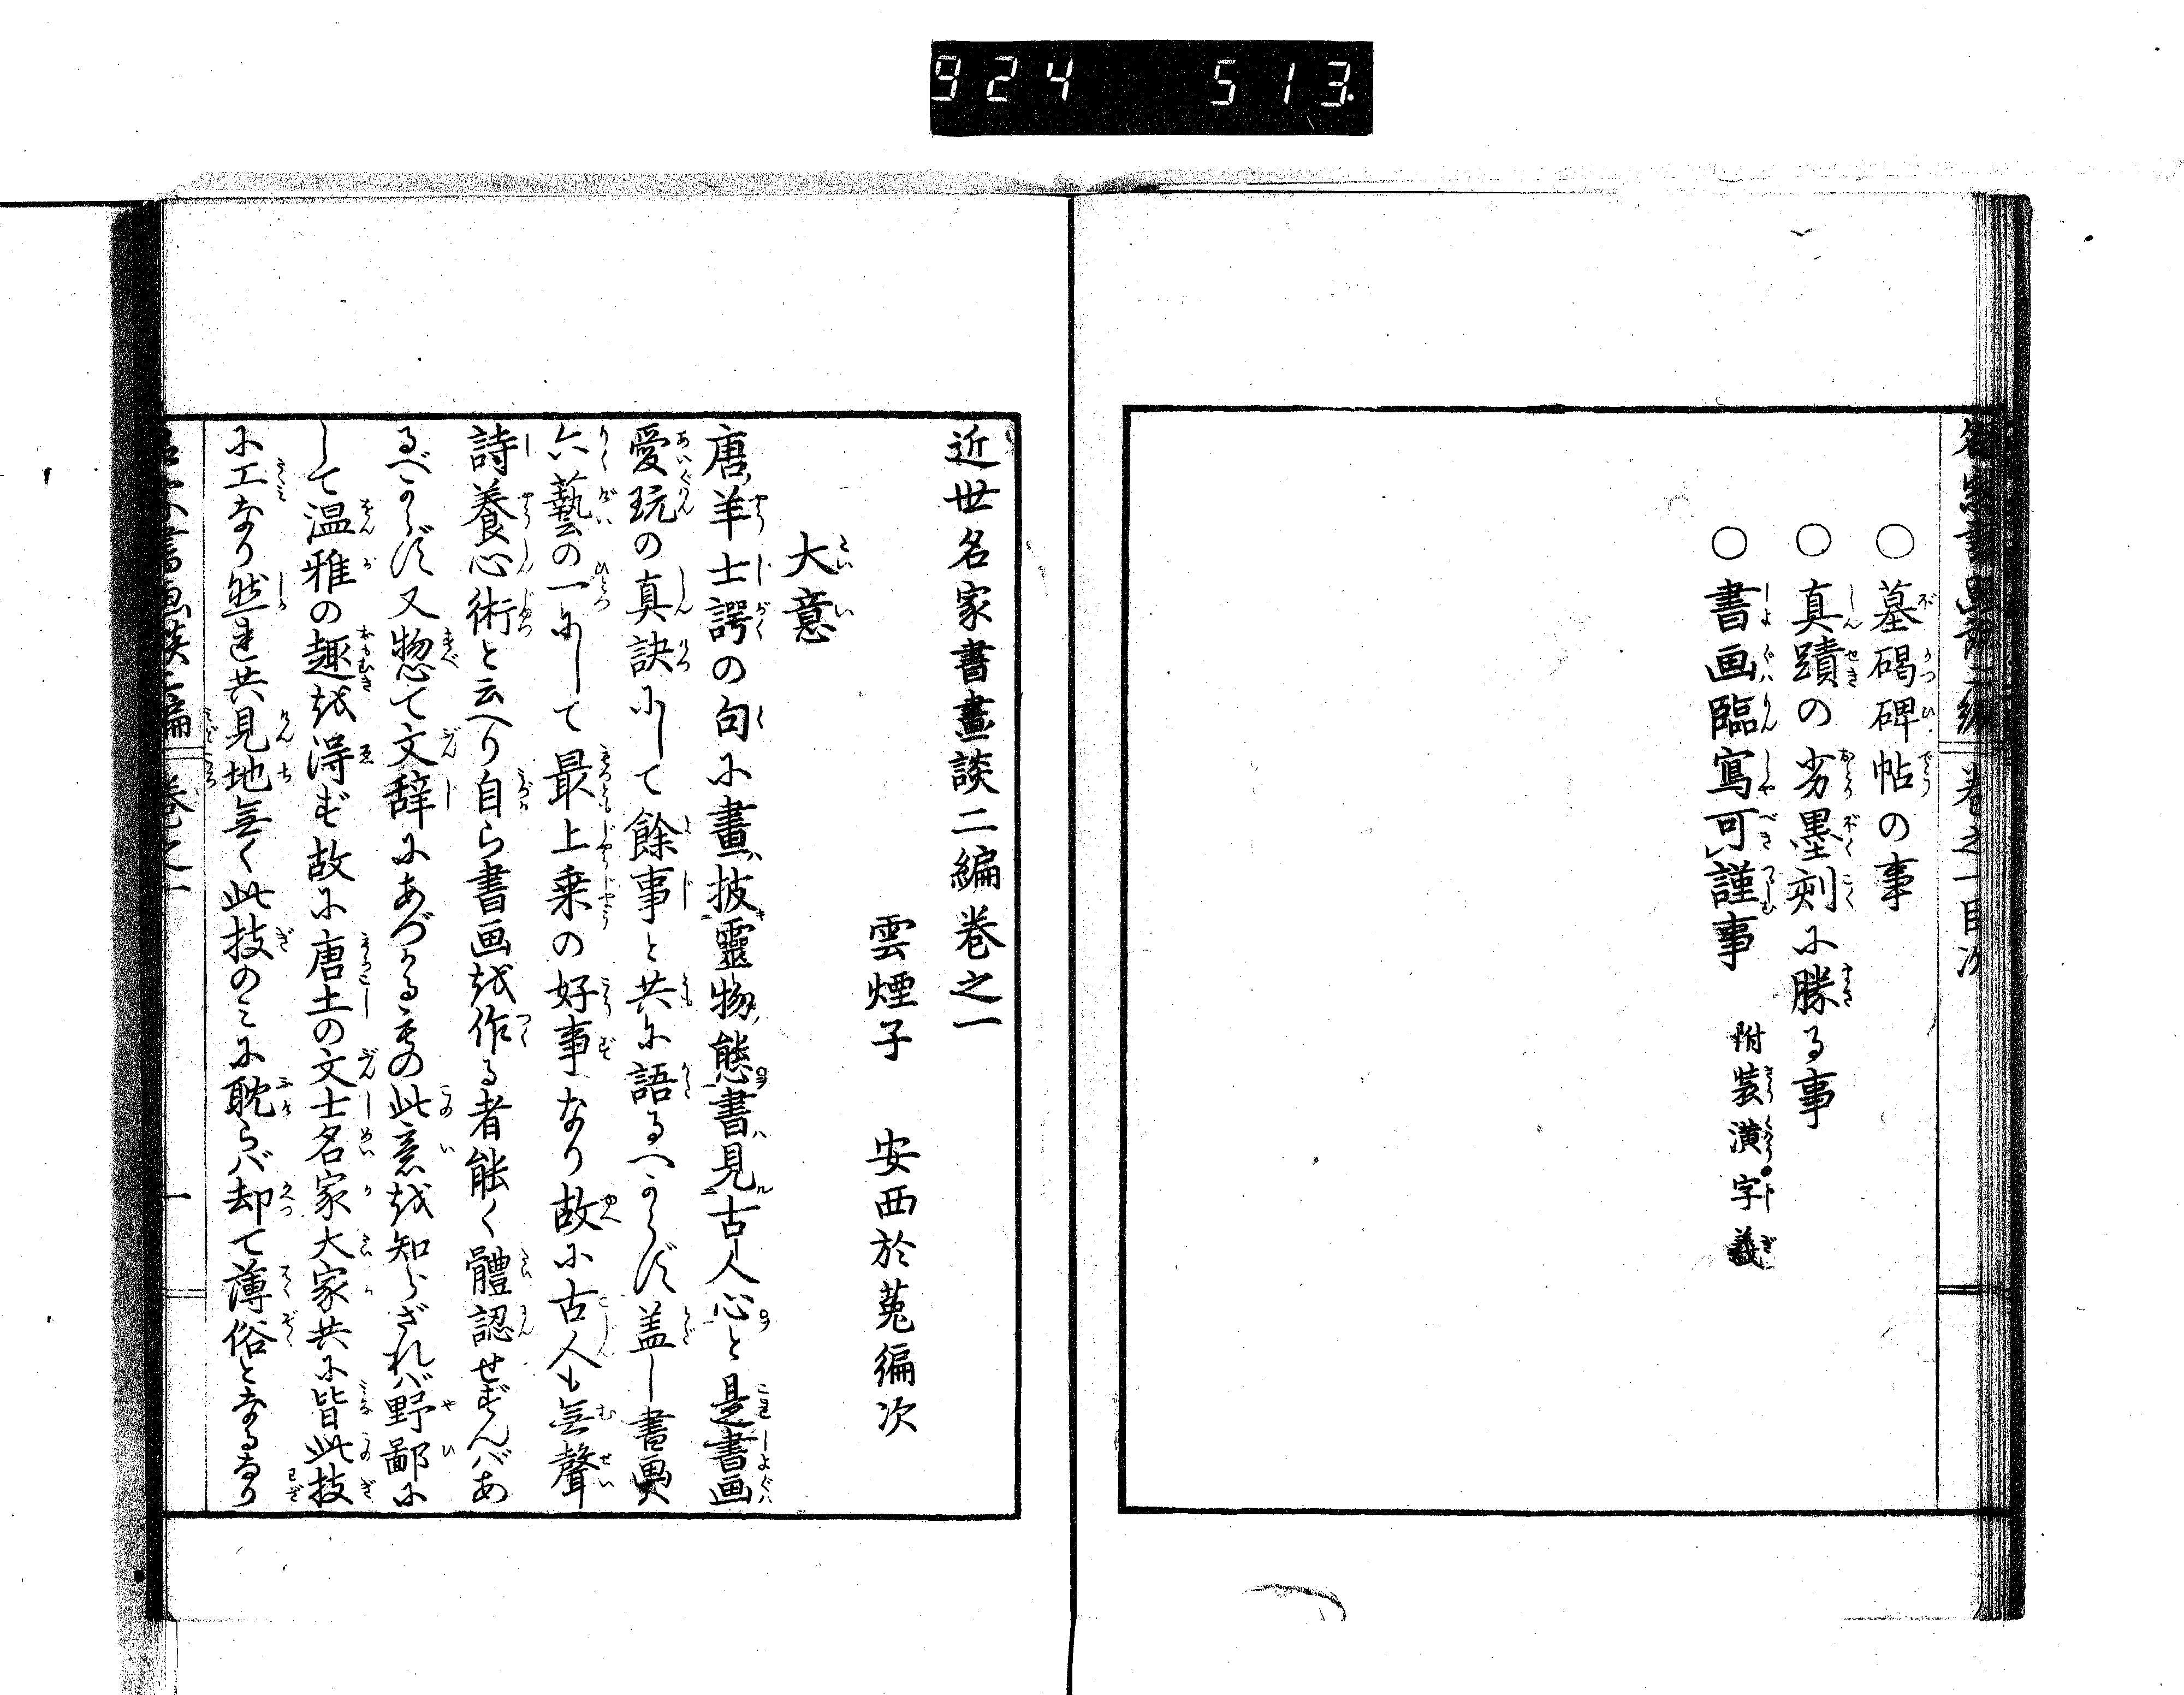 924 513
名家書画談二編 巻之一目次
○墓碣碑帖の事
○真蹟の劣墨刻に勝る事
○書画臨寫可謹事 附装潢字義
近世名家書畫談二編巻之一
雲煙子 安西於菟編次
大意
唐ノ羊士諤の句に畫ハ披靈物ノ態書ハ見ル古人ノ心と是書画
愛玩の真訣にして餘事と共に語るへからず盖し書画ハ
六藝の一にして最上乗の好事なり故に古人も無聲
詩養心術と云へり自ら書画を作る者能く體認せずんばあ
るべからず又惣て文辞にあづかるもの此意を知らざれば野鄙に
して温雅の趣を得ず故に唐土の文士名家大家共に皆此技
に工なり然れ共見地無く此技のミに耽らバ却て薄俗となるなり
名家書画談二編 巻之一 一